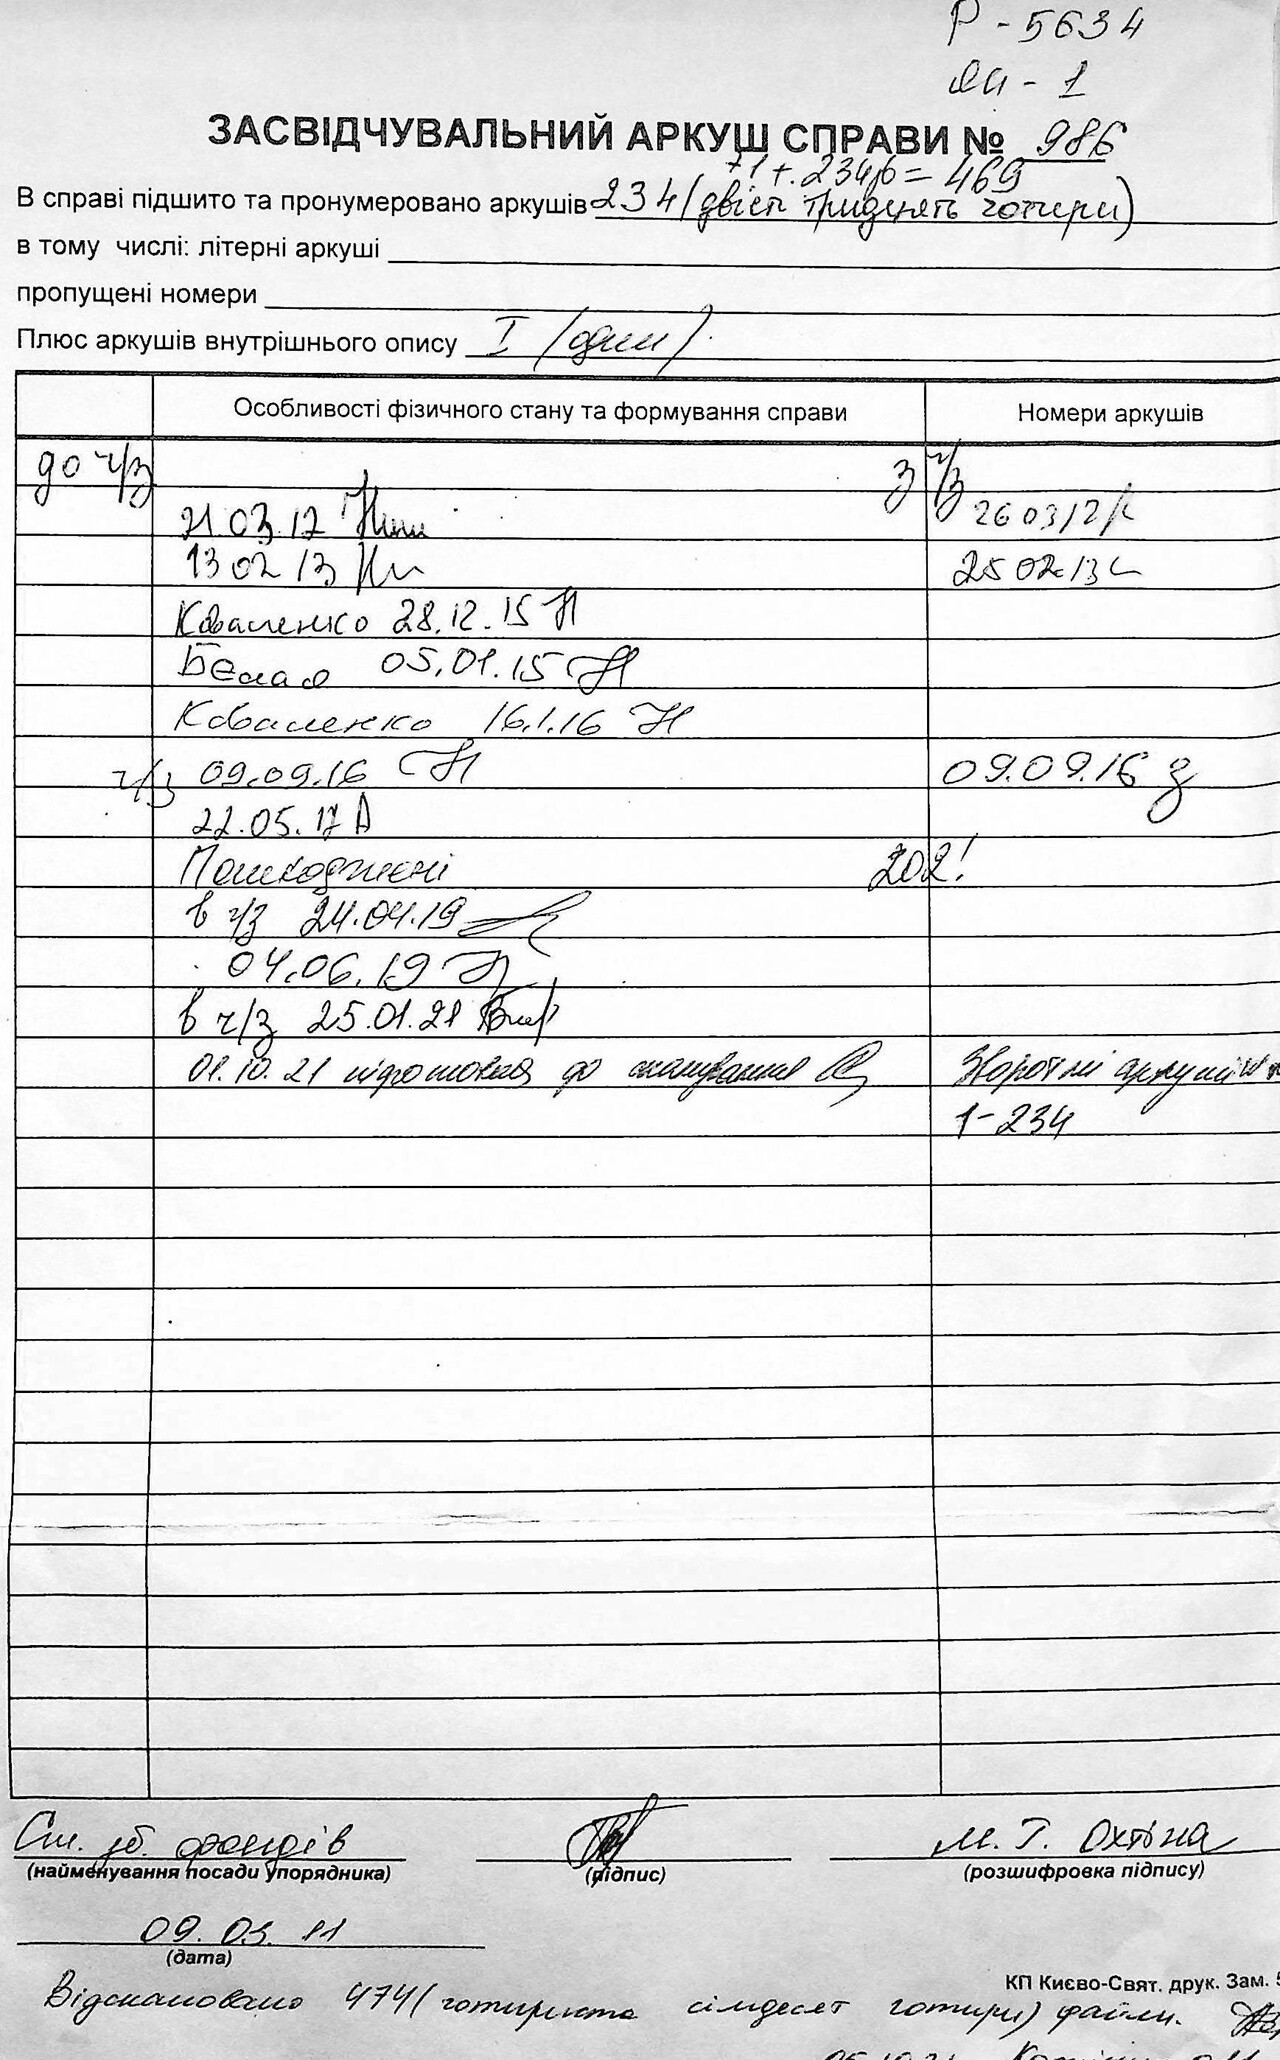 Р - 5634
оп - 1
ЗАСВІДЧУВАЛЬНИЙ АРКУШ СПРАВИ № 986
+1 + 234 = 469
В справі підшито та пронумеровано аркушів 234 (двісті тридцять чотири)
в тому числі: літерні аркуші
пропущені номери
Плюс аркушів внутрішнього опису I (один)
Особливості фізичного стану та формування справи Номери аркушів
до ч/з з ч/з
21.03.12 26 03 12
13 02 13 25 02 13
Коваленко 28.12.15
Белая 05.01.15
Коваленко 16.1.16
ч/з 09.09.16 09.09.16
22.05.17
Пошкоджені 202!
в ч/з 24.04.19
04.06.19
в ч/з 25.01.21
01.10.21 підготовка до сканування Зворотні аркуші
1-234
Ст. зб. фондів М. Т. Охтіна
(найменування посади упорядника) (підпис) (розшифровка підпису)
09.03.11
(дата)
КП Києво-Свят. друк. Зам.
Відскановано 474 (чотириста сімдесят чотири) файли.